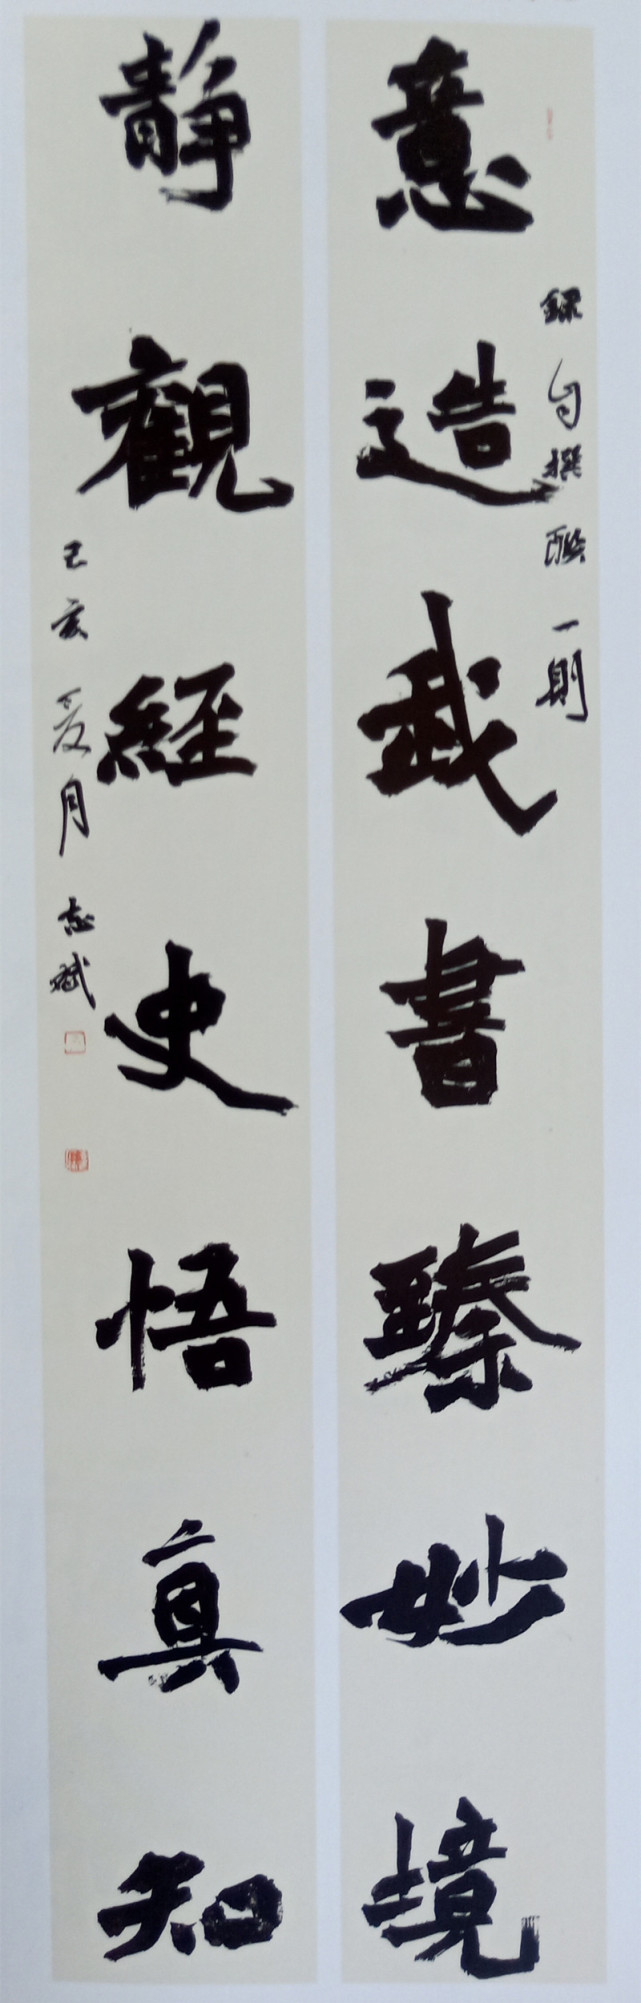 意造武書臻妙境
録自撰聯一則
静觀經史悟真知
己亥夏月志斌